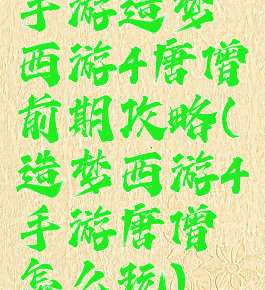 手游造梦
西游4唐僧
前期攻略(
造梦西游4
手游唐僧
怎么玩)